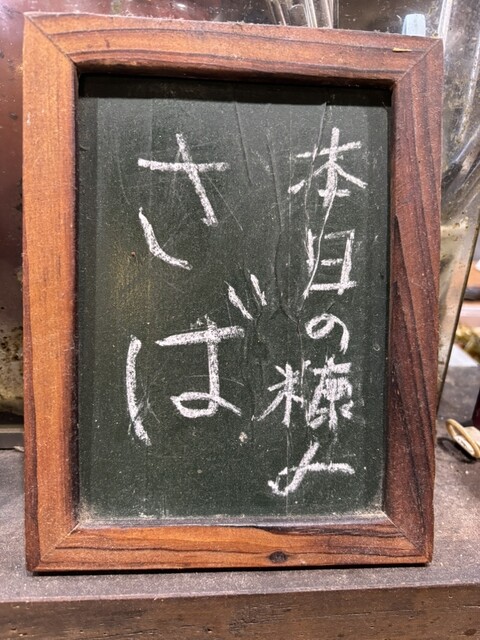 本日の糠み
さば